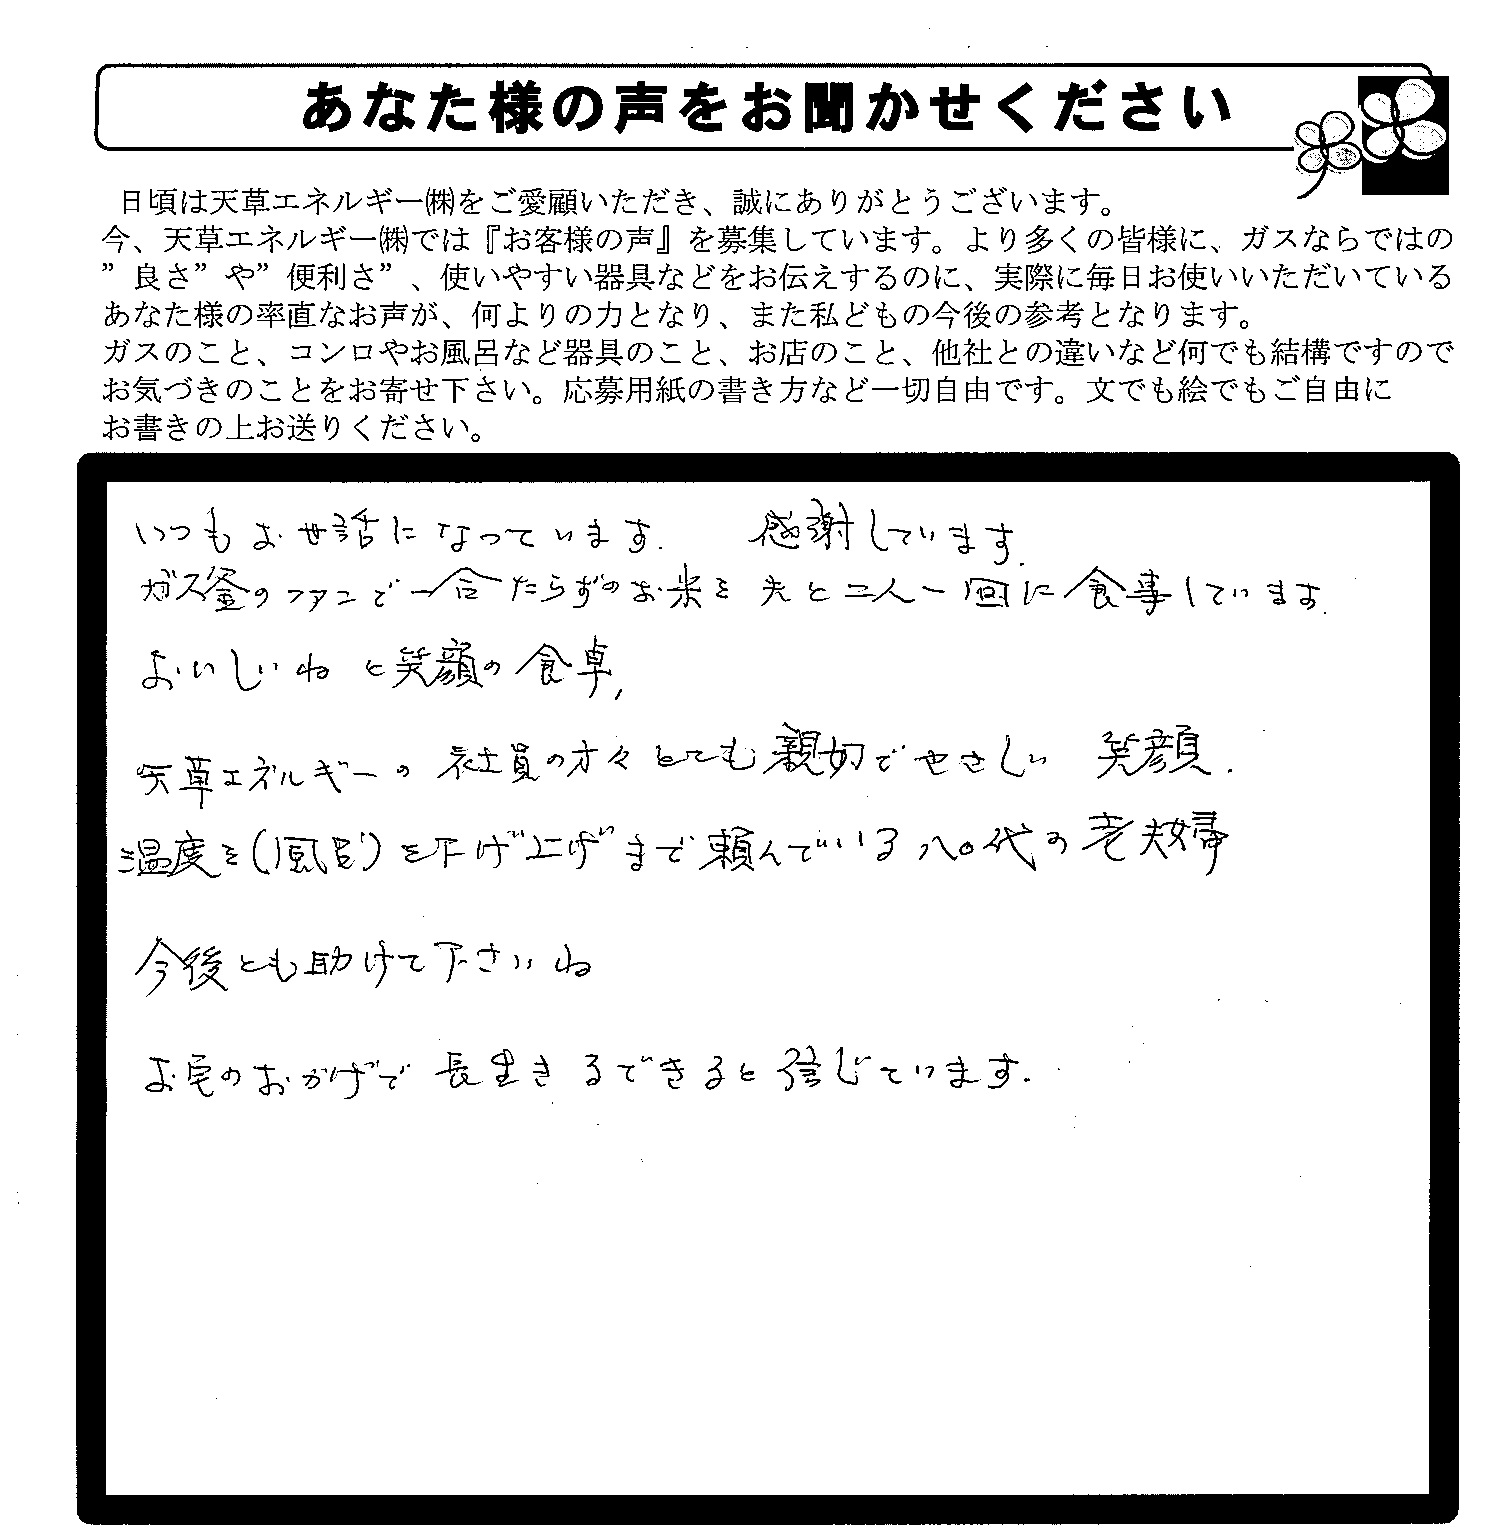 あなた様の声をお聞かせください
日頃は天草エネルギー㈱をご愛顧いただき、誠にありがとうございます。
今、天草エネルギー㈱では『お客様の声』を募集しています。より多くの皆様に、ガスならではの
”良さ”や”便利さ”、使いやすい器具などをお伝えするのに、実際に毎日お使いいただいている
あなた様の率直なお声が、何よりの力となり、また私どもの今後の参考となります。
ガスのこと、コンロやお風呂など器具のこと、お店のこと、他社との違いなど何でも結構ですので
お気づきのことをお寄せ下さい。応募用紙の書き方など一切自由です。文でも絵でもご自由に
お書きの上お送りください。
いつもお世話になっています. 感謝しています.
ガス釜のファンで一合たらずのお米を夫と二人一回に食事しています.
おいしいねと笑顔の食卓,
天草エネルギーの社員の方々とても親切でやさしい 笑顔.
温度を(風呂)を下げ上げまで頼んでいる八〇代の老夫婦
今後とも助けて下さいね
お宅のおかげで長生きるできると信じています.